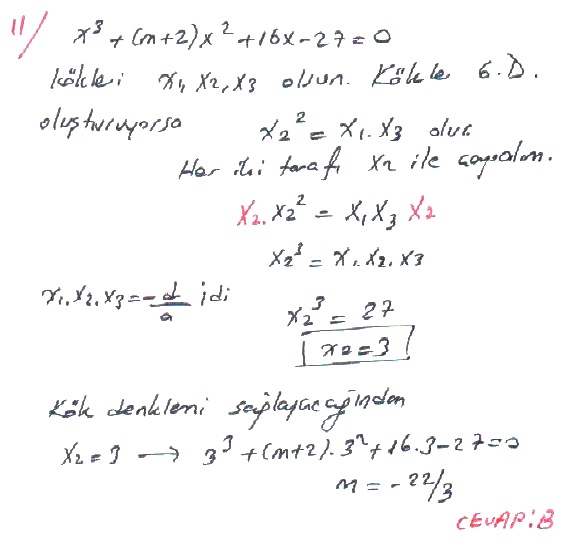 11/ x³ + (m+2)x² + 16x - 27 = 0
kökleri x₁, x₂, x₃ olsun. Kökler G.D.
oluşturuyorsa x₂² = x₁ . x₃ olur
Her iki tarafı x₂ ile çarpalım.
x₂ . x₂² = x₁ x₃ x₂
x₂³ = x₁ . x₂ . x₃
x₁ . x₂ . x₃ = -d/a idi
x₂³ = 27
x₂ = 3
Kök denklemi sağlayacağından
x₂ = 3 → 3³ + (m+2) . 3² + 16 . 3 - 27 = 0
m = -22/3
CEVAP: B